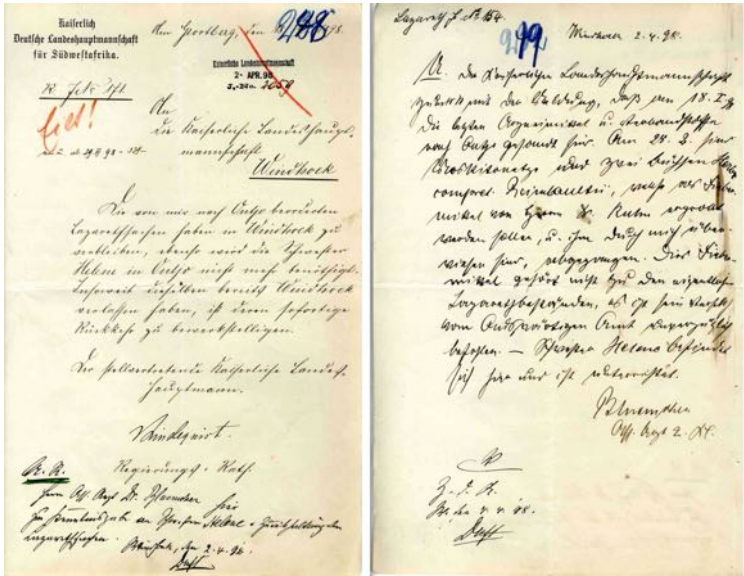 Kaiserlich
Deutsche Landeshauptmannschaft
für Südwestafrika.
Am Sportberg, den
248
Kaiserliche Landeshauptmannschaft
2- APR. 98
J.-No. 2059
Eilt!
An
die Kaiserliche Landeshaupt-
mannschaft
Windhoek
Die von mir nach Outjo beorderten
Lazarethsachen haben in Windhoek zu
verbleiben, ebenso wird die Schwester
Helene in Outjo nicht mehr benöthigt.
Insoweit dieselben bereits Windhoek
verlassen haben, ist deren sofortige
Rückkehr zu bewerkstelligen.
Der stellvertretende Kaiserliche Landes-
hauptmann.
Lindequist.
Regierungs-Rath.
Herrn Ass. Arzt Dr.
hier
zur Kenntnisgabe an Schwester Helene
Lazarethsachen.
Windhoek, den 2.4.98.
Duft
Lazareth J. No. 154.
249
Windhoek 2.4.98.
U. der Kaiserlichen Landeshauptmannschaft
zurück mit der Meldung, daß am 18.
die letzten Arzneimittel u. Verbandstoffe
nach Outjo gesandt sind. Am 25. 3. sind
Moskitonetze und zwei Büchsen
compret. welche als Fieber-
mittel von Herrn Dr. Kuhn erprobt
werden sollen, u. ihm durch mich über-
wiesen sind, abgegangen. Dies Fieber-
mittel gehört nicht zu den eigentlichen
Lazarethbeständen, es ist sein Versuch
vom Auswärtigen Amt
befohlen. — Schwester Helene befindet
sich hier und ist unterrichtet.
Ass. Arzt 2. Kl.
Z. d. A.
Duft